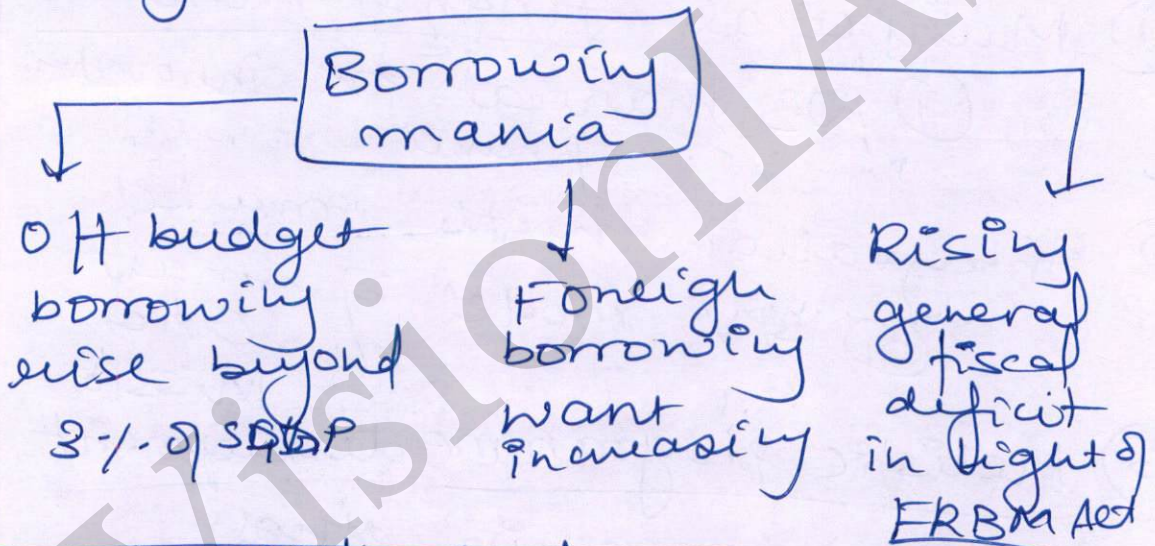 Borrowing
mania
Off budget
borrowing
rise beyond
3% of SGDP
Foreign
borrowing
want
increasing
Rising
general
fiscal
deficit
in light of
FRBM Act
VisionIAS